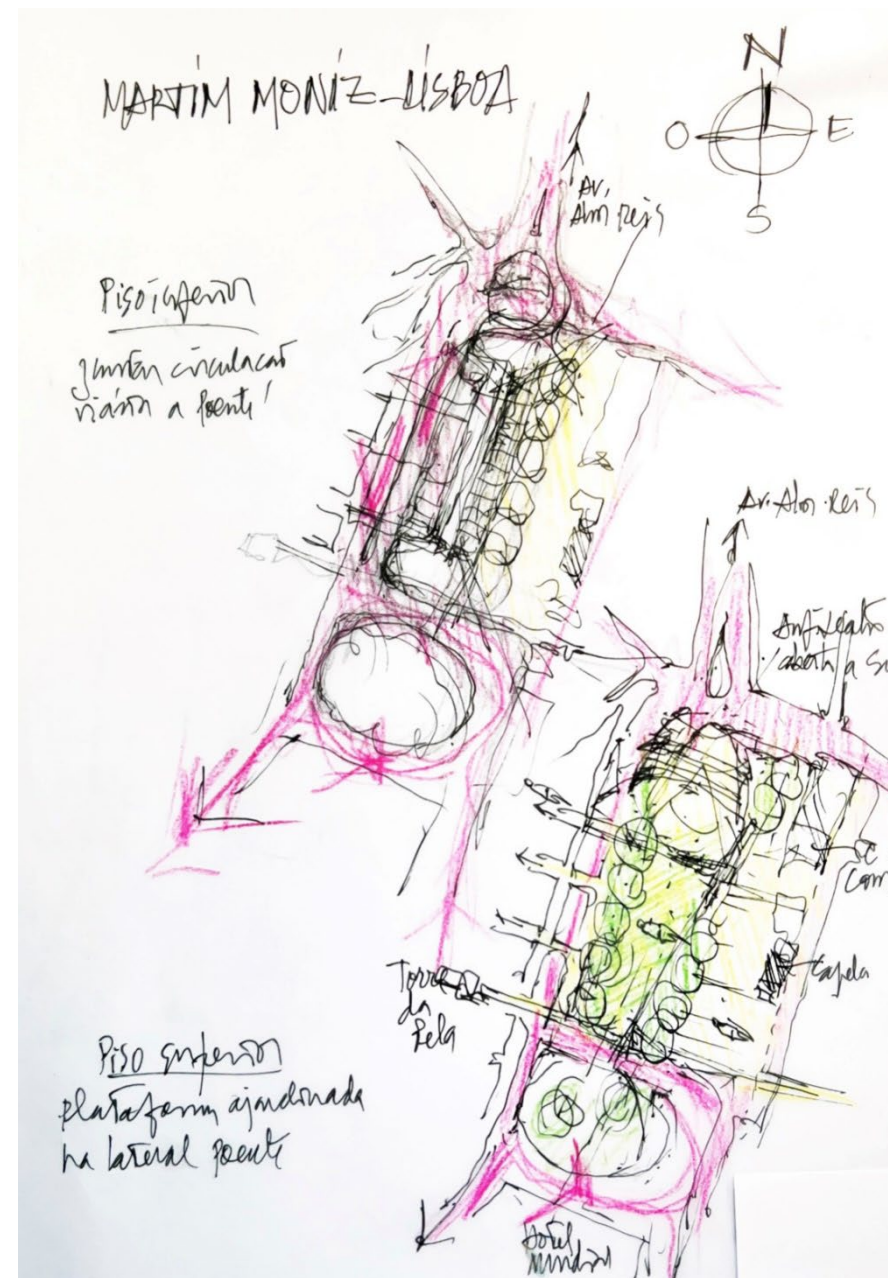 MARTIM MONIZ - LISBOA
N
O E
S
Av.
Alm Reis
Piso inferior
juntar circulação
viária a poente!
Av. Alm. Reis
Anfiteatro
aberto a
Torre
da
Pela
Capela
Piso superior
plataforma ajardinada
na lateral poente
Hotel
Mundial